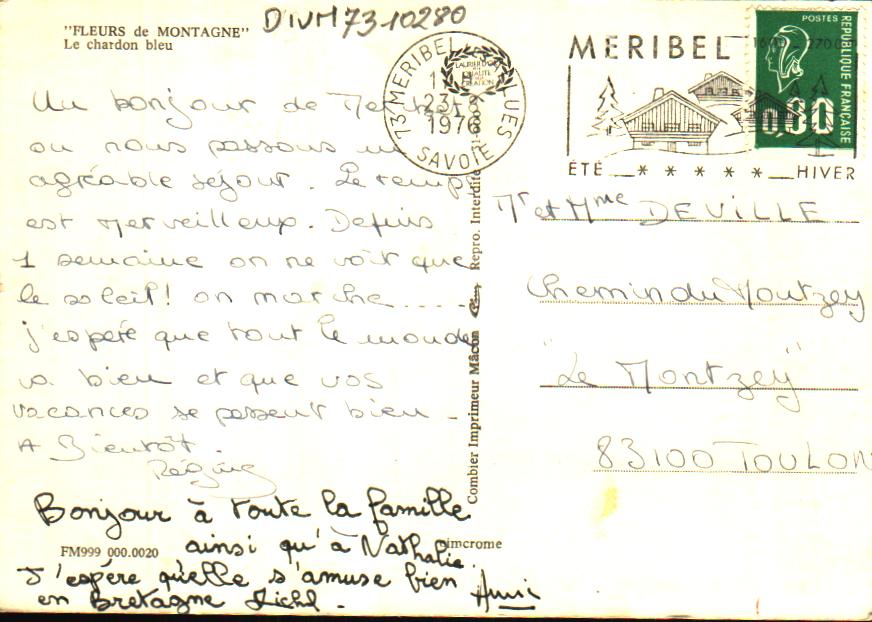 DIVM7310280
"FLEURS de MONTAGNE"
Le chardon bleu
73 MERIBEL LES ALLUES
23-8
1976
SAVOIE
MERIBEL
1600 - 2700
ÉTÉ _ * * * * * _ HIVER
POSTES
RÉPUBLIQUE FRANÇAISE
0,80
Un bonjour de Meribel
ou nous passons un
agréable séjour. Le temps
est merveilleux. Depuis
1 semaine on ne voit que
le soleil! on marche.....
j'espère que tout le monde
va bien et que vos
vacances se passent bien -
A Bientôt.
Régine
Bonjour à toute la famille
ainsi qu'à Nathalie.
J'espère qu'elle s'amuse bien
en Bretagne
FM999 000.0020
Cimcrome
Combier Imprimeur Mâcon
Repro. Interdite
Mr et Mme DEVILLE
Chemin du Montzey
"Le Montzey"
83100 TOULON